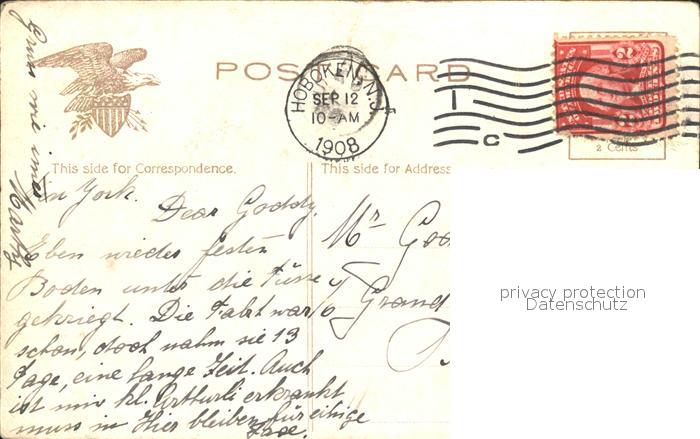 POST CARD
HOBOKEN, N.J.
SEP 12
10-AM
1908
C
2
2 Cents
This side for Correspondence.
This side for Address
privacy protection
Datenschutz
in York.
Dear Goddy,
Eben wieder festen
Boden unter die Füsse
gekriegt. Die Fahrt war
schön, doch nahm sie 13
Tage, eine lange Zeit. Auch
ist mir kl. Arthurli erkrankt
muss in Hier bleiben für einige
Tage.
Gruss wie immer
Mr Goo
Grand